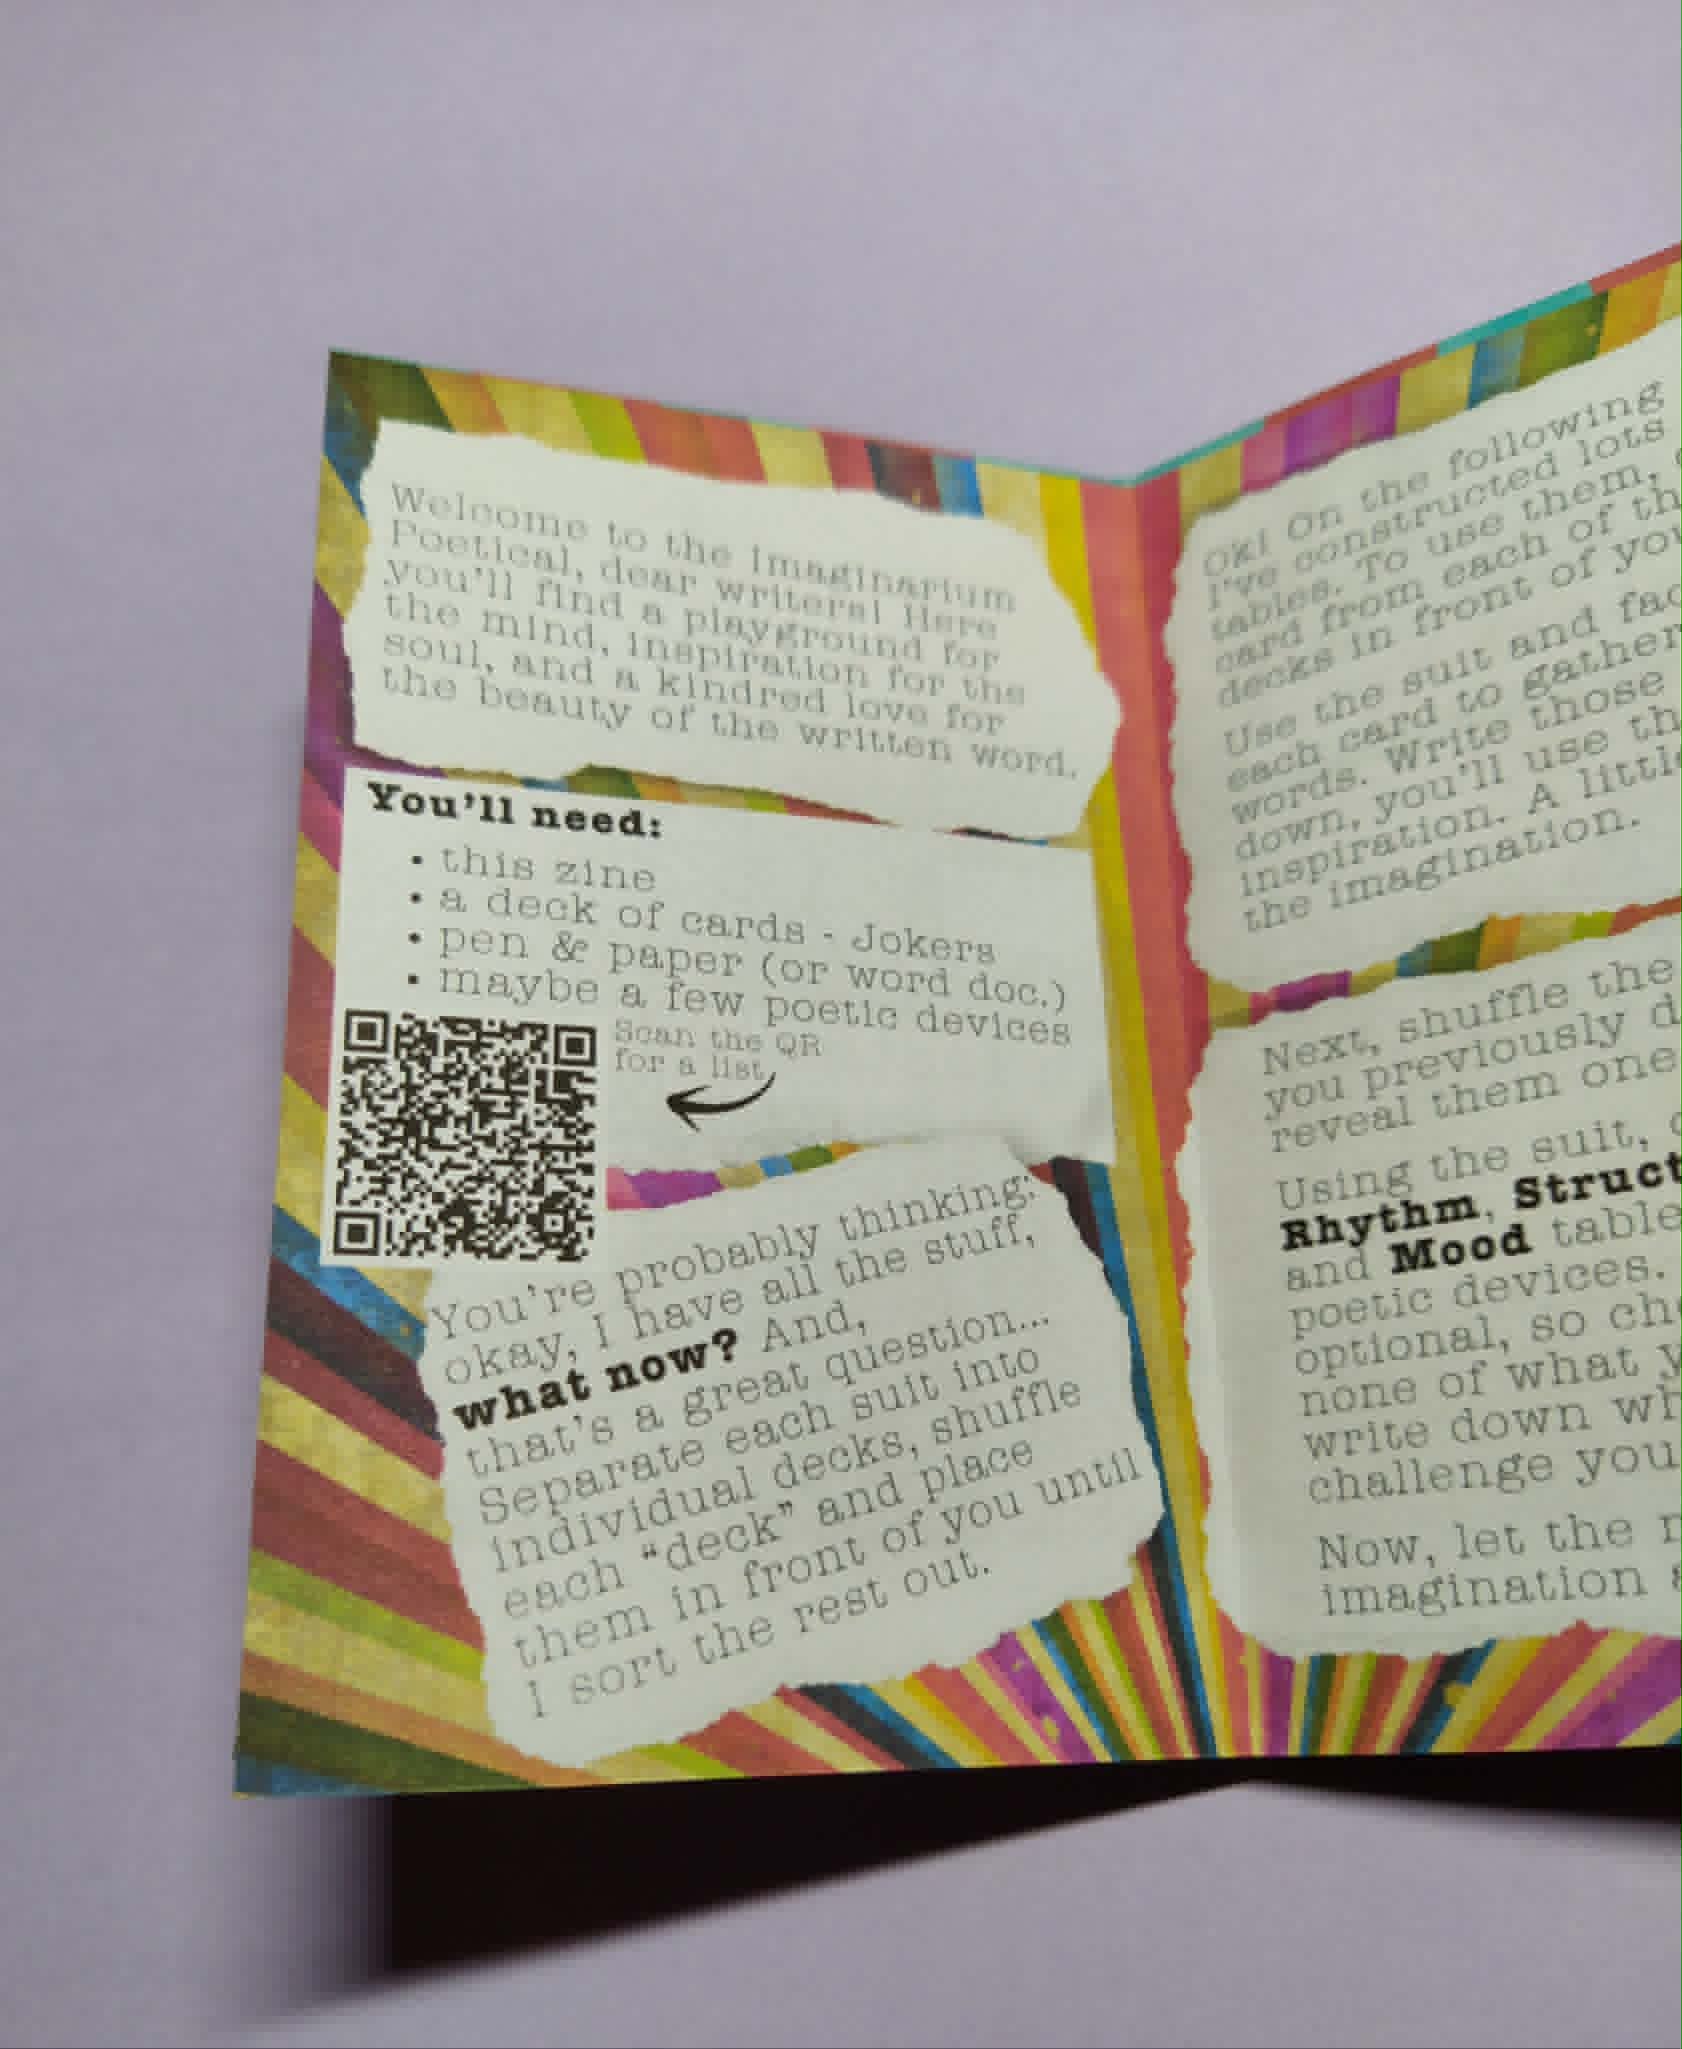 Welcome to the Imaginarium
Poetical, dear writers! Here
you'll find a playground for
the mind, inspiration for the
soul, and a kindred love for
the beauty of the written word.
You'll need:
• this zine
• a deck of cards - Jokers
• pen & paper (or word doc.)
• maybe a few poetic devices
Scan the QR
for a list
You're probably thinking:
okay, I have all the stuff,
what now? And,
that's a great question...
Separate each suit into
individual decks, shuffle
each "deck" and place
them in front of you until
I sort the rest out.
Ok! On the following
I've constructed lots
tables. To use them,
card from each of th
decks in front of you
Use the suit and fac
each card to gather
words. Write those
down, you'll use th
inspiration. A little
the imagination.
Next, shuffle the
you previously d
reveal them one
Using the suit,
Rhythm, Struct
and Mood table
poetic devices.
optional, so cho
none of what y
write down wh
challenge you
Now, let the
imagination